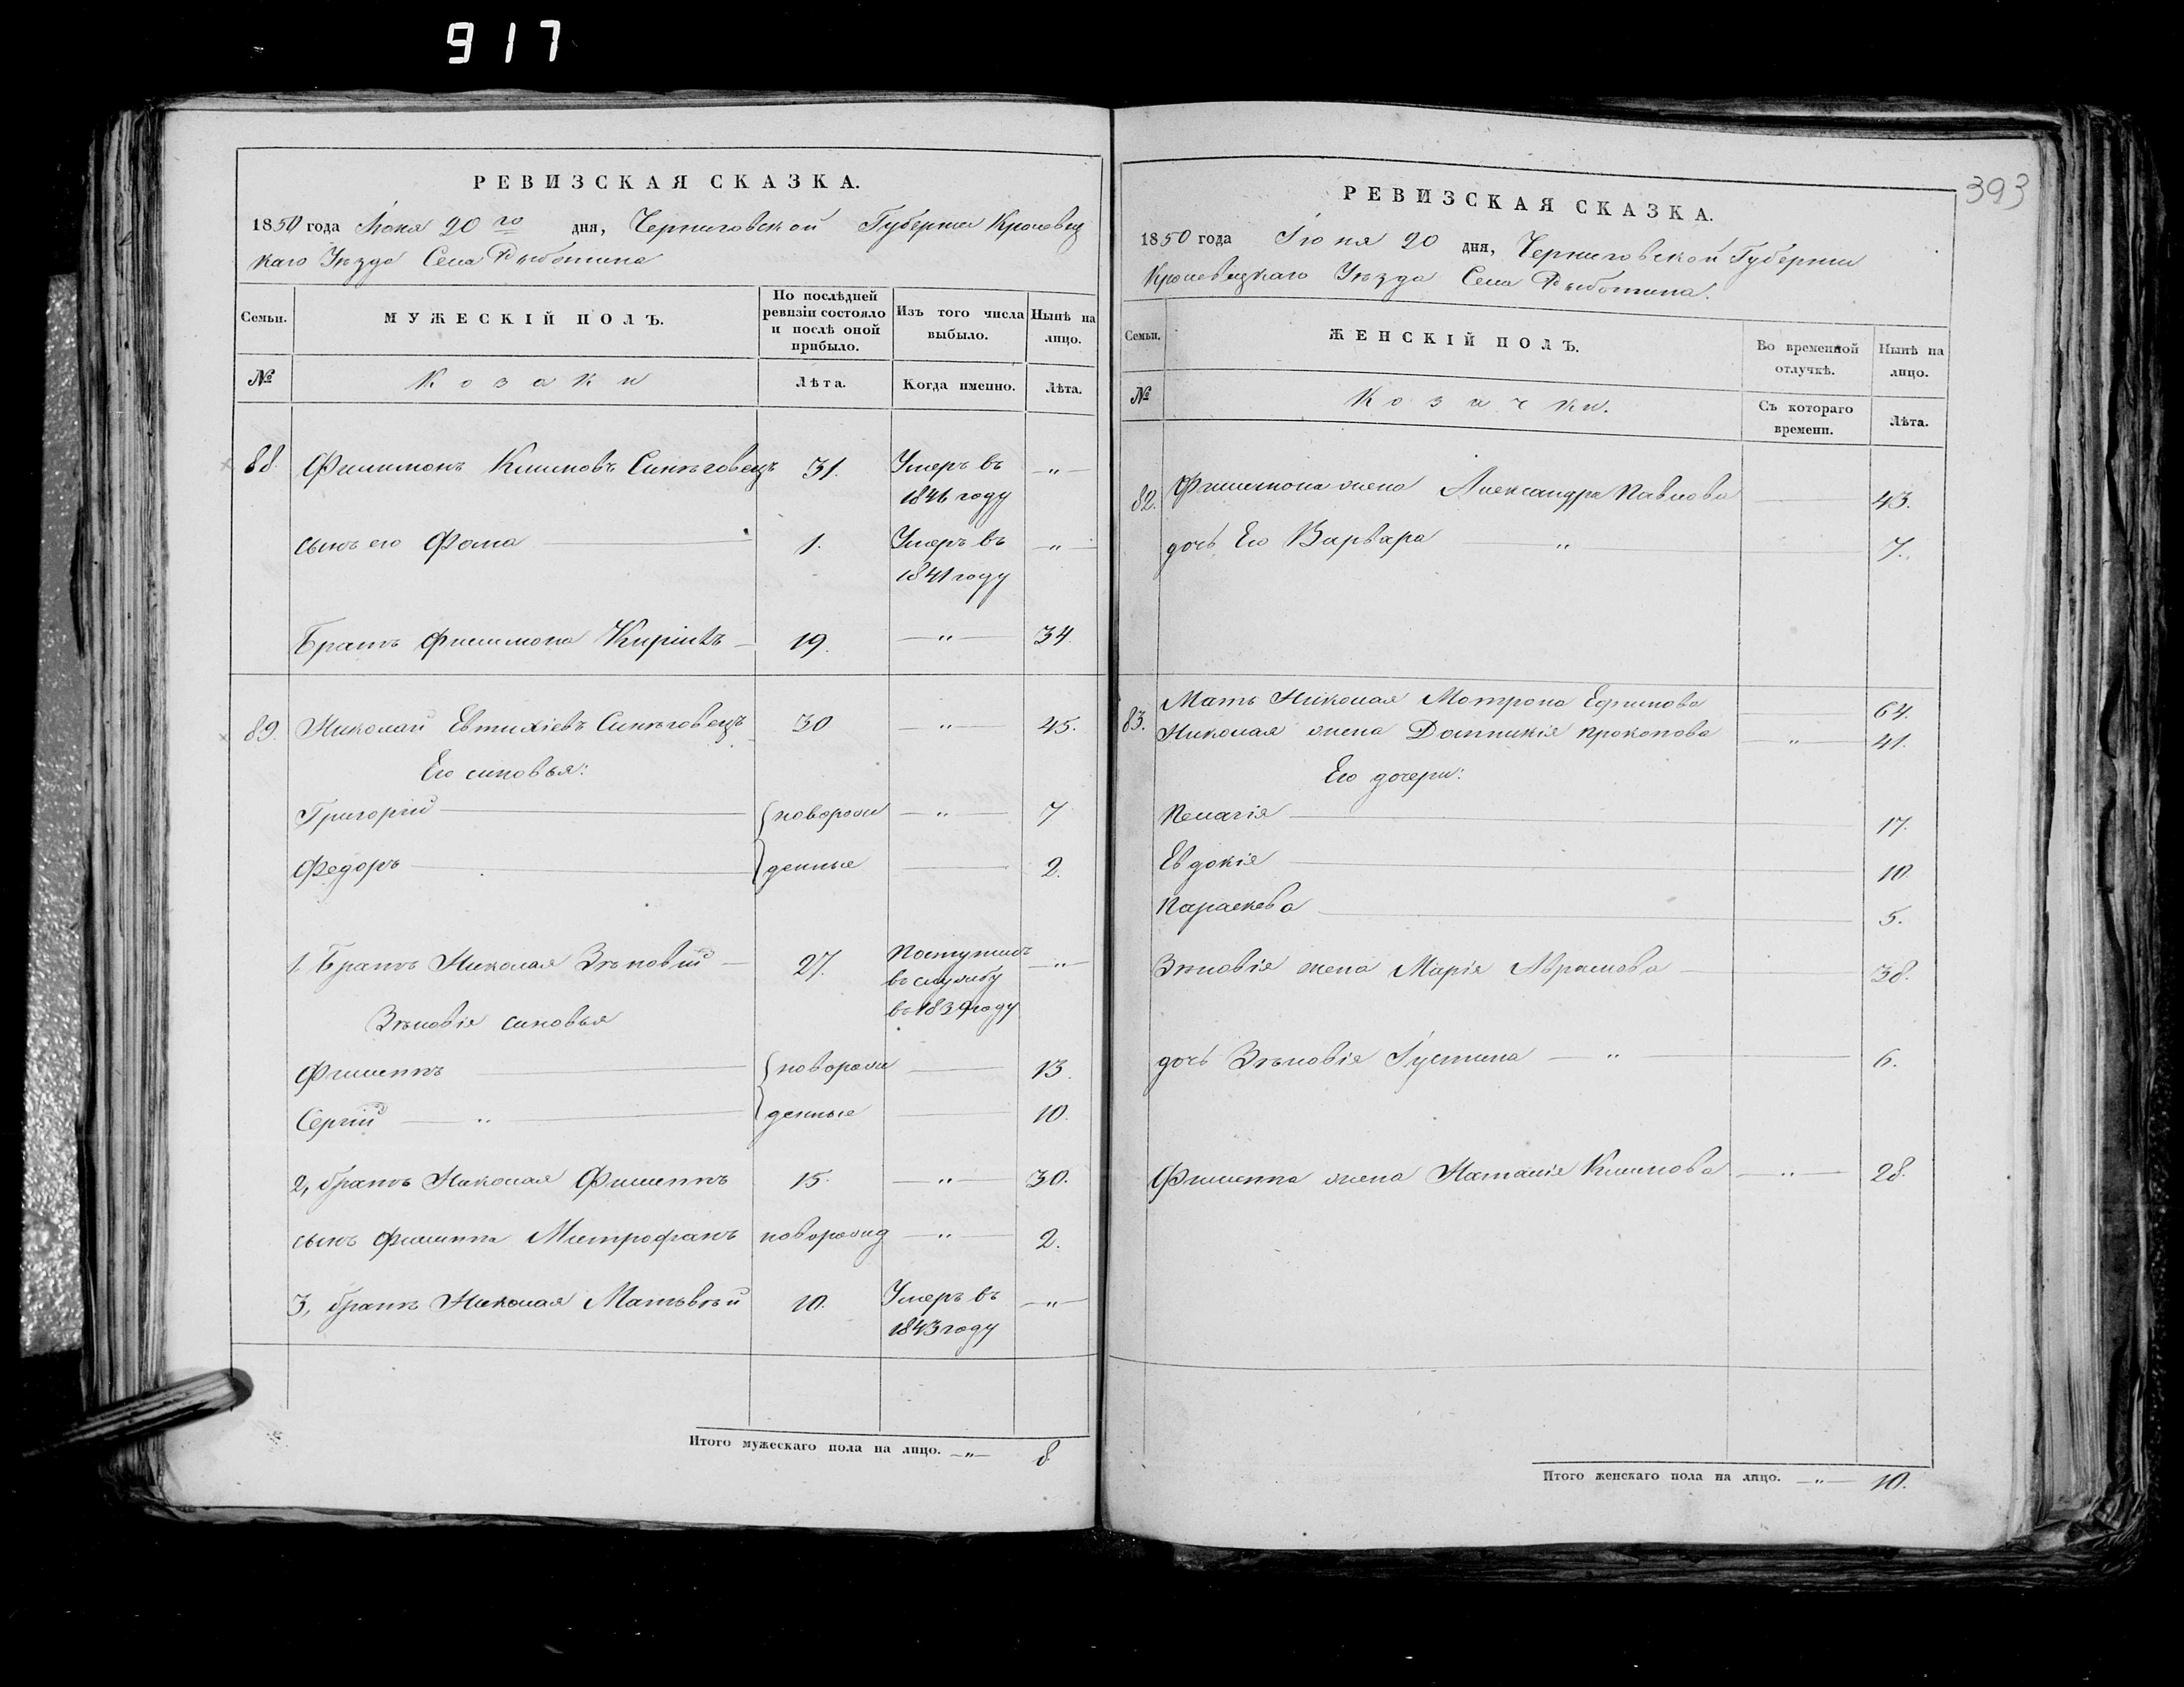 917
РЕВИЗСКАЯ СКАЗКА.
1850 года Июня 20 го дня, Черниговской Губернии Кролевец
каго Уезда Села Рыботина
Семьи.
МУЖЕСКІЙ ПОЛЪ.
По послѣдней ревизіи состояло и послѣ оной прибыло.
Изъ того числа выбыло.
Нынѣ на лицо.
№
Козаки
Лѣта.
Когда именно.
Лѣта.
88. Филимонъ Климовъ Синяговецъ 31. Умеръ въ — " —
1846 году
сынъ его Фома — 1. Умеръ въ — " —
1841 году
Братъ Филимона Кирилъ — 19. — " — 34.
89. Николай Евтихіевъ Синяговецъ 30 — " — 45.
Его синовья:
Григорій — { новорож — " — 7
Федоръ — { денные — 2.
1. Братъ Николая Зѣновій — 27. Поступилъ — " —
въ службу
въ 1839 году
Зѣновія синовья
Филиппъ — { новорож — 13.
Сергій — " — { денные — 10.
2, братъ Николая Филиппъ 15. — " — 30.
сынъ Филиппа Митрофанъ новорожд — " — 2.
3, братъ Николая Матвѣй 10. Умеръ въ — " —
1843 году
Итого мужескаго пола на лицо. — " — 8
393
РЕВИЗСКАЯ СКАЗКА.
1850 года Іюня 20 дня, Черниговской Губернии
Кролевецкаго Уезда Села Рыботина.
Семьи.
ЖЕНСКІЙ ПОЛЪ.
Во временной отлучкѣ.
Нынѣ на лицо.
№
Козачки.
Съ котораго времени.
Лѣта.
82. Филимона жена Александра Павлова — 43.
дочь Его Варвара — " — 7.
Мать Николая Мотрона Ефимова — 64.
83. Николая жена Домникія Прокопова — " — 41.
Его дочери:
Пелагія — 17.
Евдокія — 10
Параскева — 5.
Зѣновія жена Марія Абрамова — 38.
дочь Зѣновія Іустина — " — 6.
Филиппа жена Наталія Климова — " — 28.
Итого женскаго пола на лицо. — " — 10.